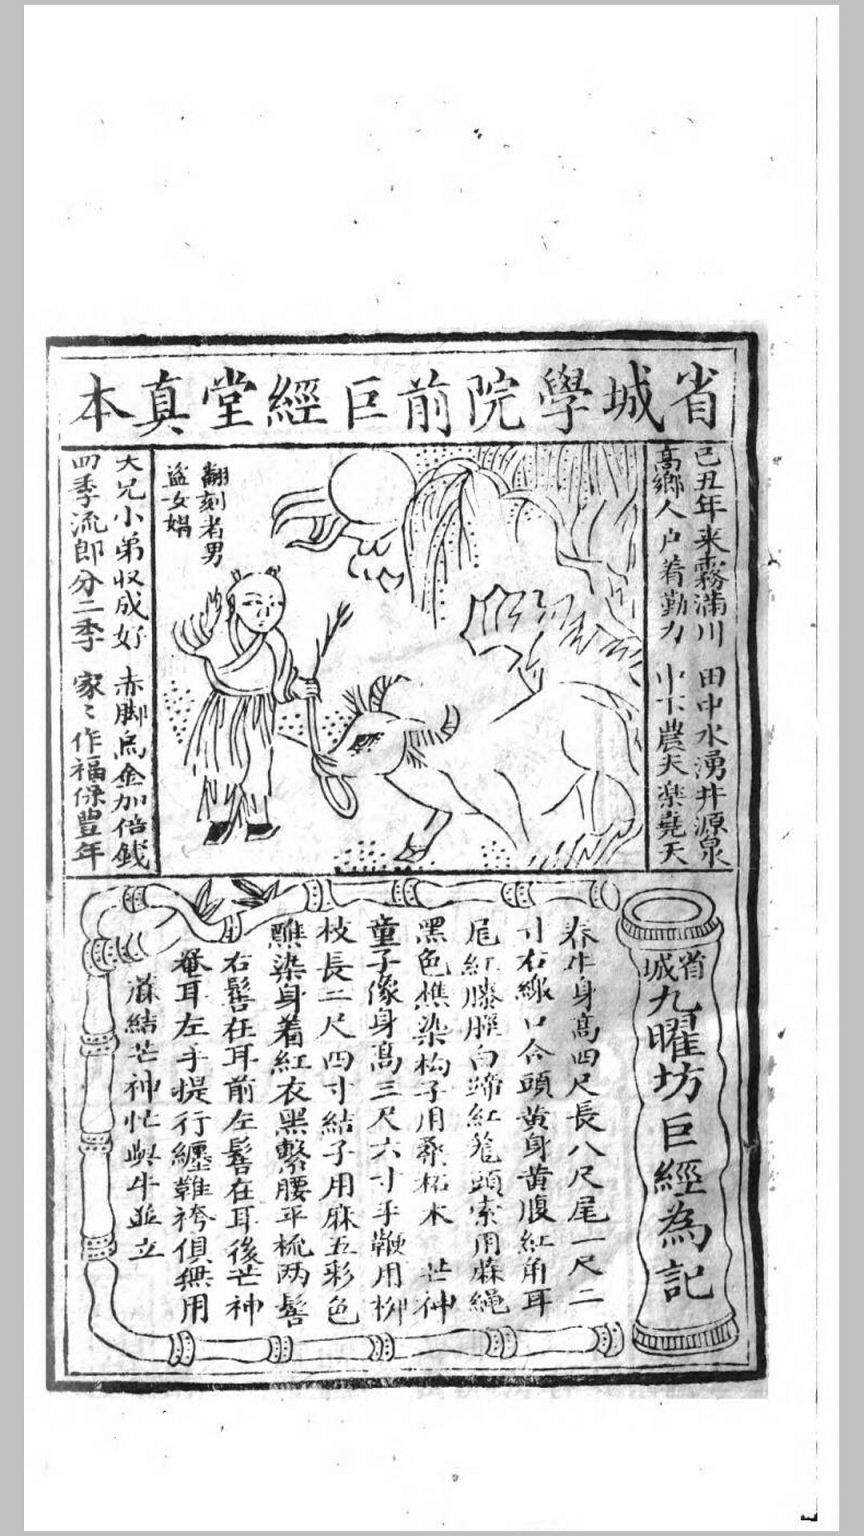 省城學院前巨經堂真本
己丑年来霧滿川 田中水湧井源泉
高鄉人户着勤力 中下農夫樂堯天
翻刻者男
盜女娼
大兄小弟収成好 赤脚烏金加倍錢
四季流郎分二季 家〻作福保豊年
省城九曜坊巨經為記
春牛身高四尺長八尺尾一尺二
寸右繳口合頭黄身黄腹紅角耳
尾紅膝脛白蹄紅籠頭索用蔴繩
黑色樵染构子用桑柘木 芒神
童子像身高三尺六寸手鞭用柳
枝長二尺四寸結子用麻五彩色
醮染身着紅衣黑繫腰平梳两髻
右髻在耳前左髻在耳後芒神
罨耳左手提行纏鞋袴俱無用
蔴結芒神忙與牛並立